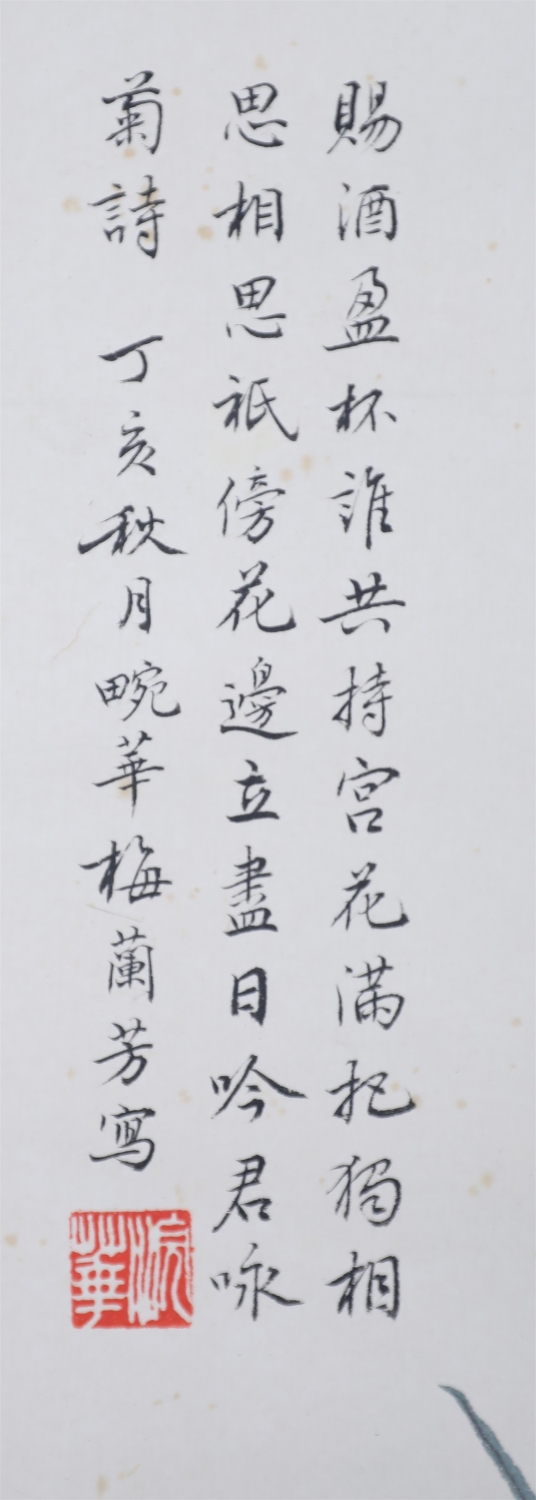 賜酒盈杯誰共持宮花滿把獨相
思相思祇傍花邊立盡日吟君咏
菊詩 丁亥秋月畹華梅蘭芳寫
浣華